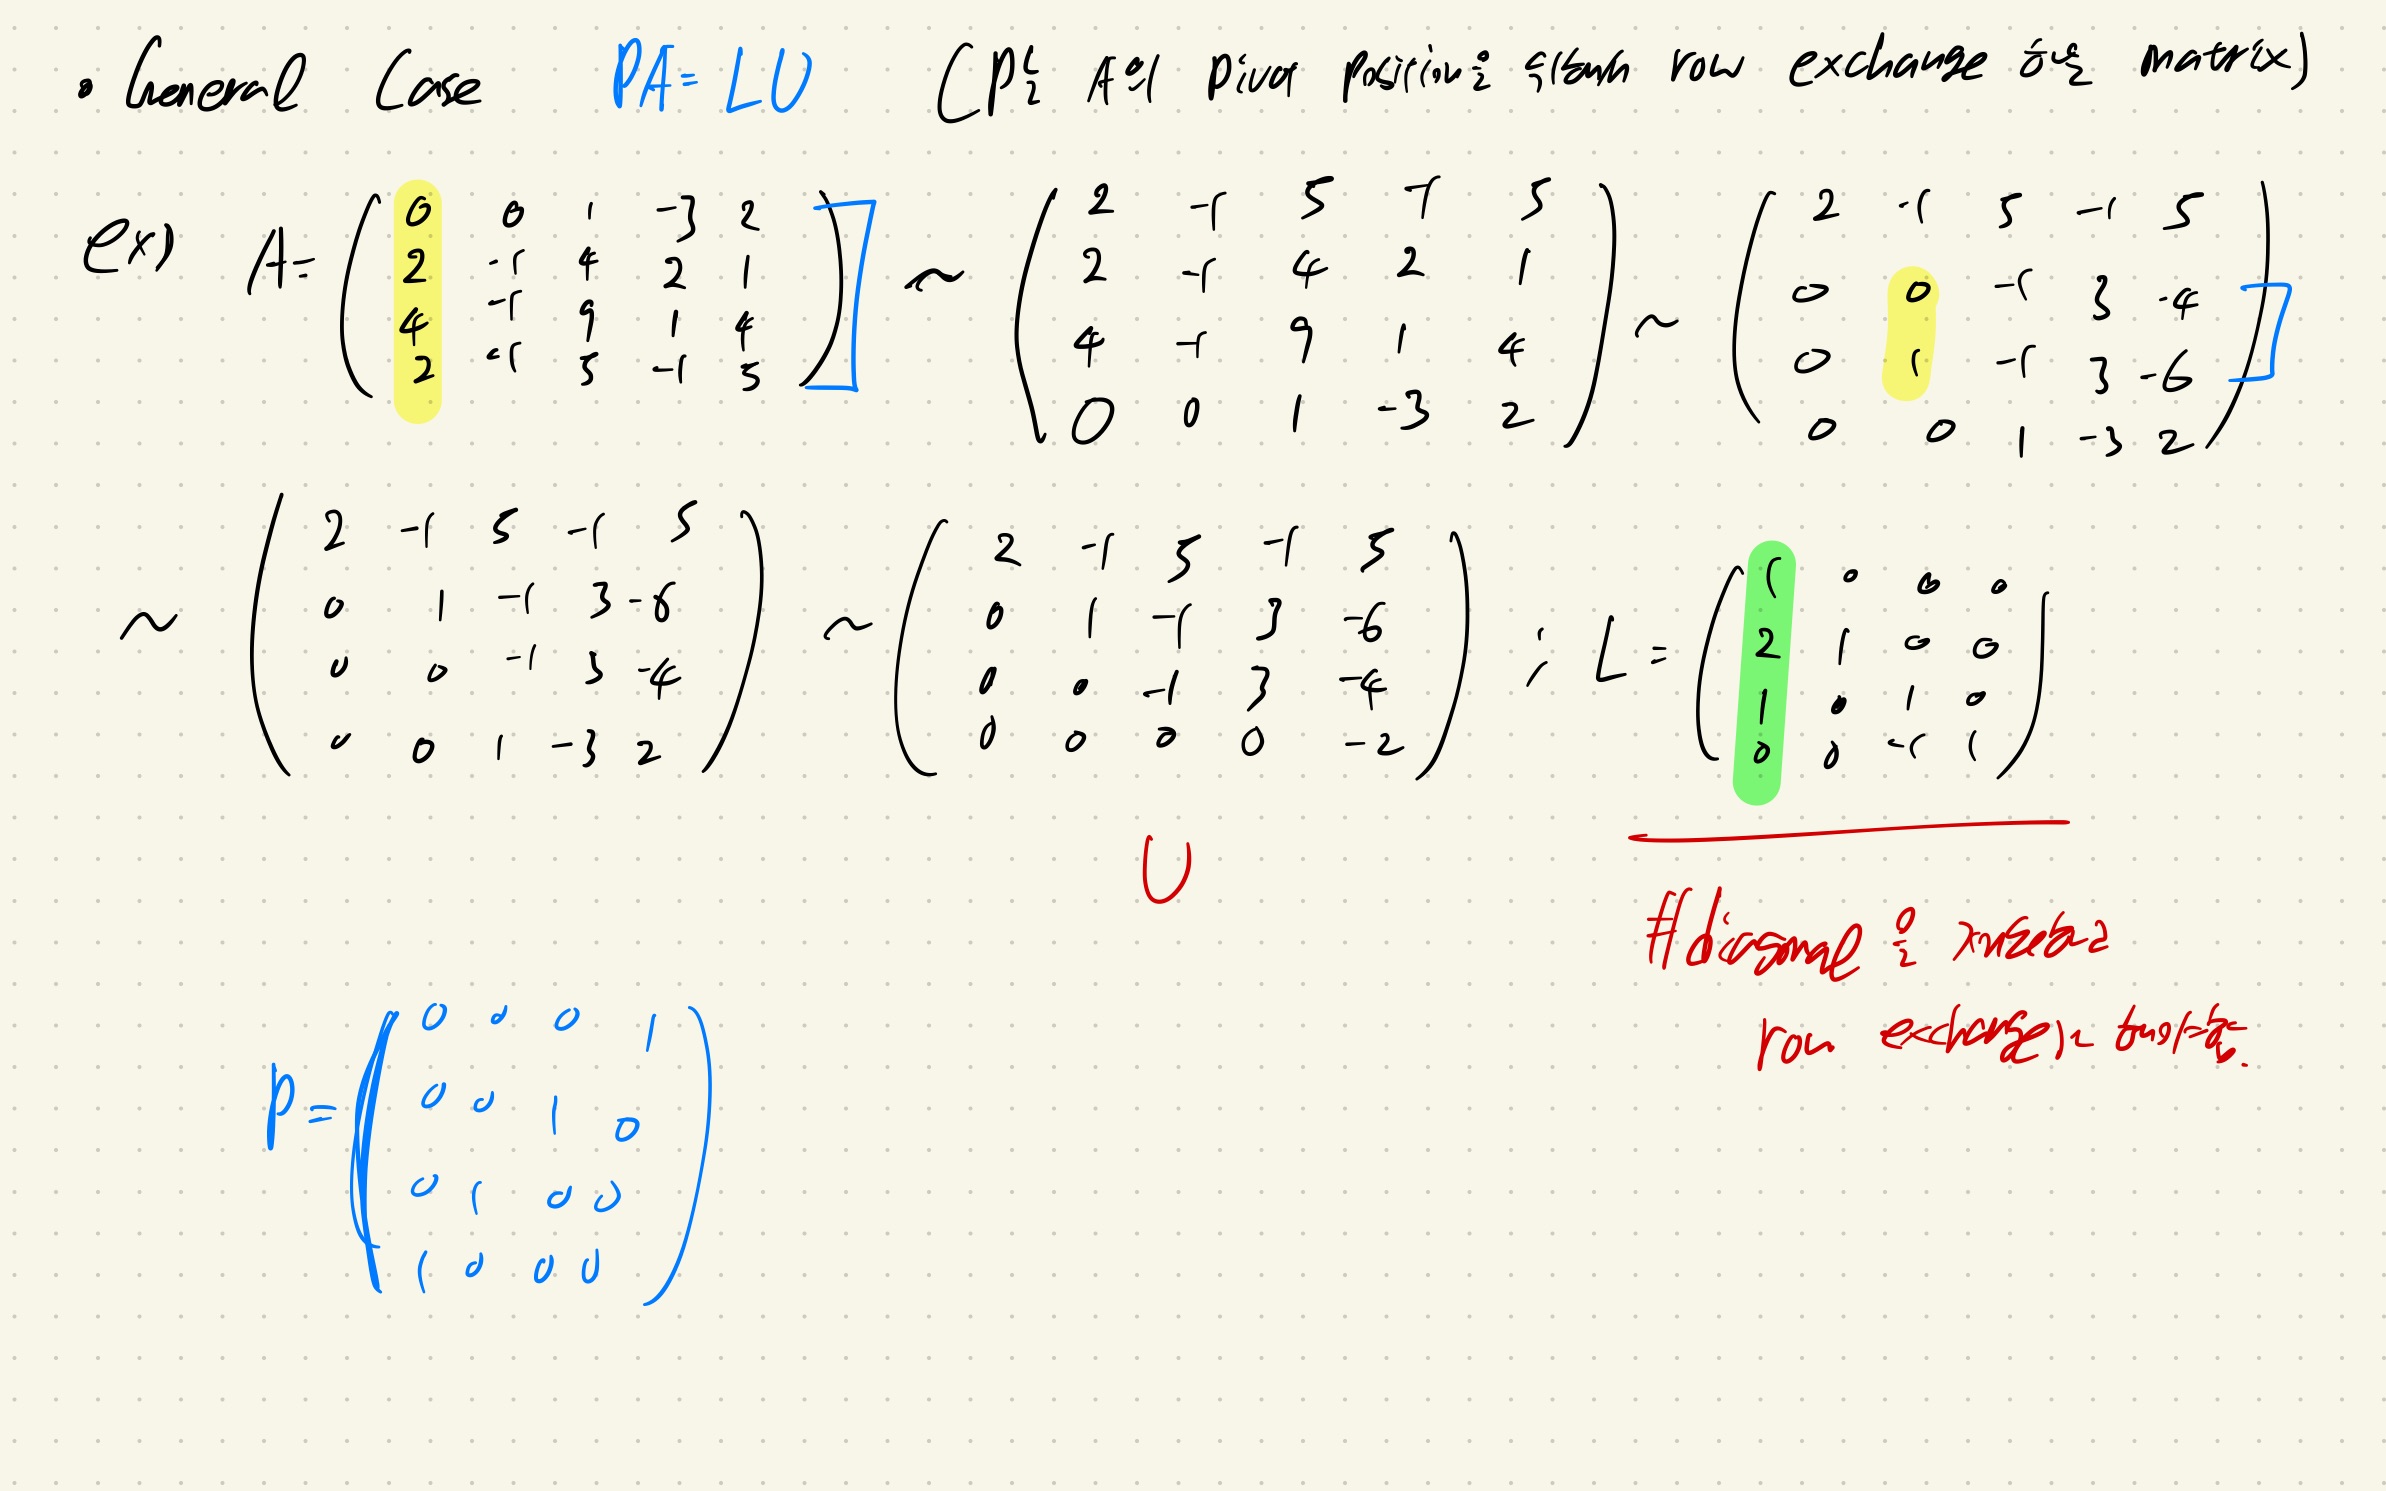 • General Case PA=LU (P는 A의 pivot position을 위해 row exchange 해주는 matrix)
ex) A= ( 0 0 1 -3 2 ) ~ ( 2 -1 5 -1 5 ) ~ ( 2 -1 5 -1 5 )
2 -1 4 2 1 2 -1 4 2 1 0 0 -1 3 -4
4 -1 9 1 4 4 -1 9 1 4 0 1 -1 3 -6
2 -1 5 -1 5 0 0 1 -3 2 0 0 1 -3 2
~ ( 2 -1 5 -1 5 ) ~ ( 2 -1 5 -1 5 ) ; L= ( 1 0 0 0 )
0 1 -1 3 -6 0 1 -1 3 -6 2 1 0 0
0 0 -1 3 -4 0 0 -1 3 -4 1 0 1 0
0 0 1 -3 2 0 0 0 0 -2 0 0 -1 1
U
#diagonal을
row exchange
P= ( 0 0 0 1 )
0 0 1 0
0 1 0 0
1 0 0 0